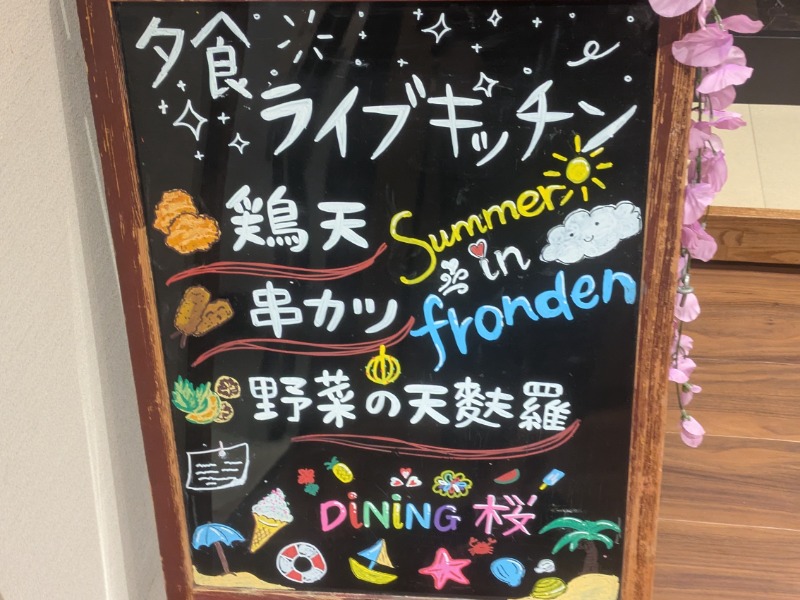 夕食
ライブキッチン
鶏天
Summer
in
串カツ
fronden
野菜の天麩羅
DiNiNG 桜